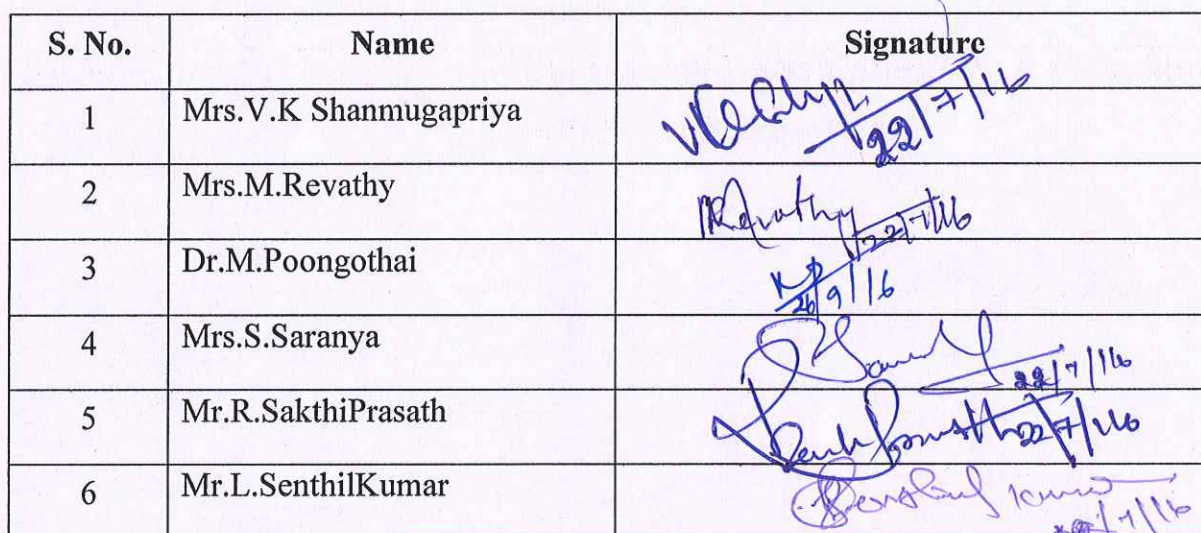 S. No. Name Signature
1 Mrs.V.K Shanmugapriya 22/7/16
2 Mrs.M.Revathy Revathy 22/7/16
3 Dr.M.Poongothai 26/9/16
4 Mrs.S.Saranya 22/7/16
5 Mr.R.SakthiPrasath 22/7/16
6 Mr.L.SenthilKumar